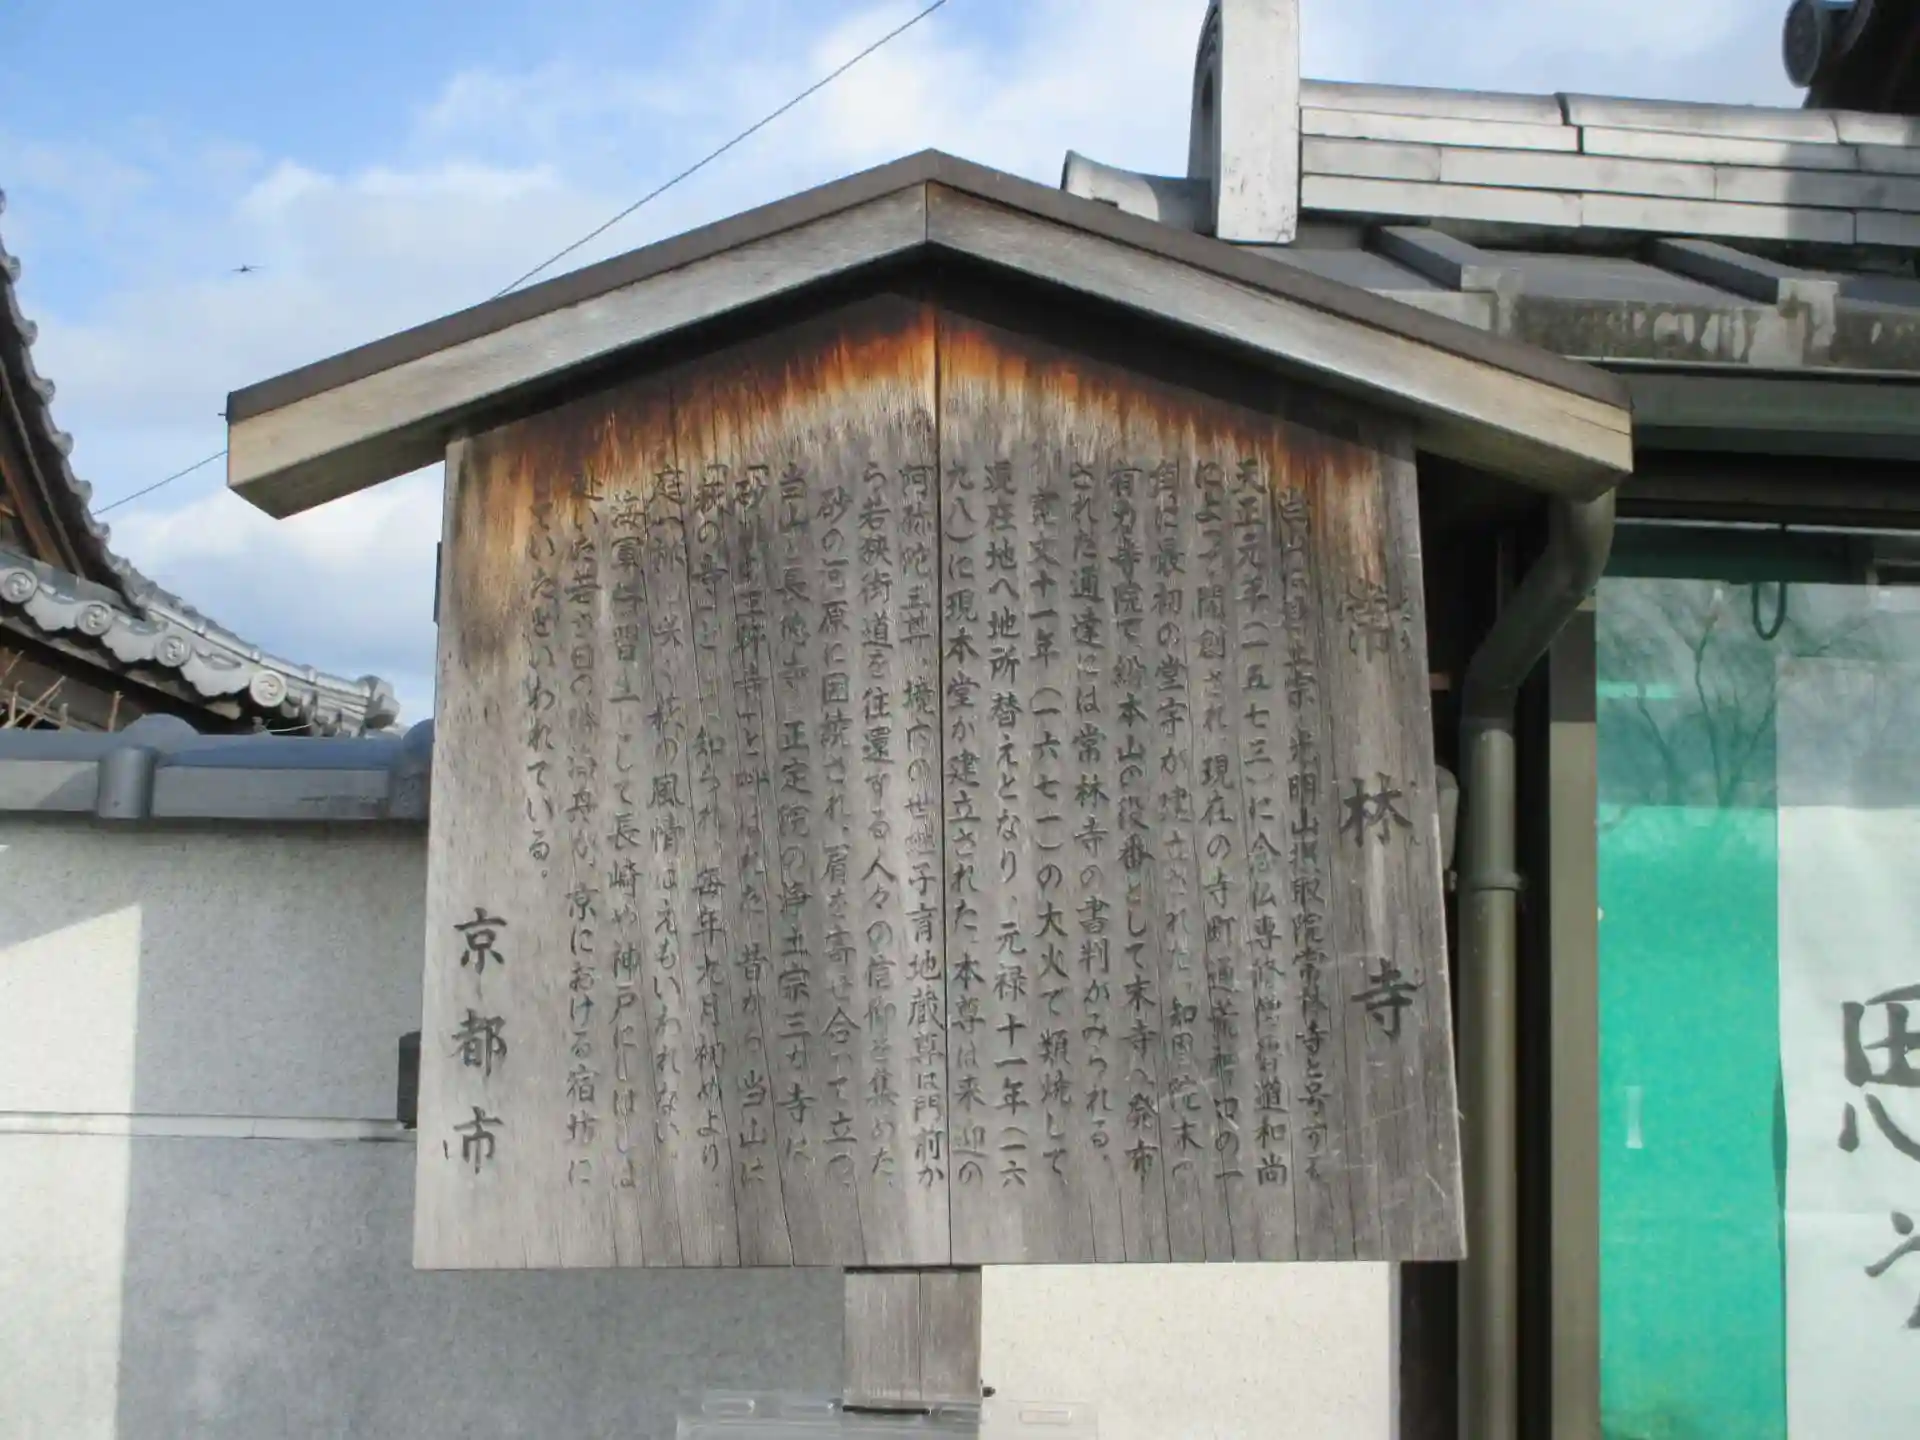 常林寺
当山は浄土宗・光明山摂取院常林寺と号する。
天正元年(一五七三)に念仏専修僧 魯道和尚
によって開創され、現在の寺町通荒神口の一
角に最初の堂宇が建立された。知恩院末の
有力寺院で総本山の役番として末寺へ発布
された通達には常林寺の書判がみられる。
寛文十一年(一六七一)の大火で類焼して
現在地へ地所替えとなり、元禄十一年(一六
九八)に現本堂が建立された。本尊は来迎の
阿弥陀三尊、境内の世継子育地蔵尊は門前か
ら若狭街道を往還する人々の信仰を集めた。
砂の河原に囲続され、肩を寄せ合って立つ、
当山・長徳寺・正定院の浄土宗三カ寺は
「砂川の三軒寺」と呼ばれた。昔から当山は
「萩の寺」として知られ、毎年九月初めより、
庭一杯に咲く萩の風情はえもいわれない。
海軍伝習生として長崎や神戸にしばしば
赴いた若き日の勝海舟が、京における宿坊に
していたといわれている。
京都市
恩